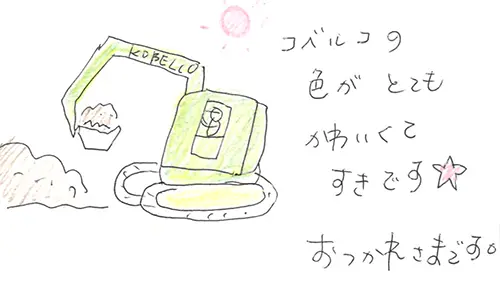 KOBELCO
コベルコの
色が とても
かわいくて
すきです☆
おつかれさまです。